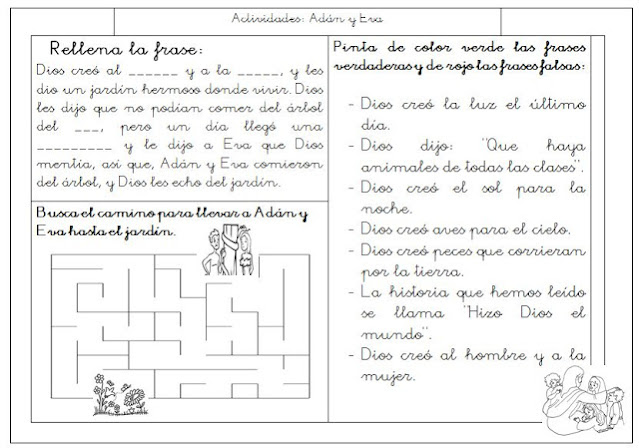 Actividades: Adán y Eva
Rellena la frase:
Dios creó al ______ y a la _____, y les
dio un jardín hermoso donde vivir. Dios
les dijo que no podían comer del árbol
del ___, pero un día llegó una
_________ y le dijo a Eva que Dios
mentía, así que, Adán y Eva comieron
del árbol, y Dios les echo del jardín.
Busca el camino para llevar a Adán y
Eva hasta el jardín.
Pinta de color verde las frases
verdaderas y de rojo las frases falsas:
- Dios creó la luz el último
día.
- Dios dijo: "Que haya
animales de todas las clases".
- Dios creó el sol para la
noche.
- Dios creó aves para el cielo.
- Dios creó peces que corrieran
por la tierra.
- La historia que hemos leído
se llama "Hizo Dios el
mundo".
- Dios creó al hombre y a la
mujer.